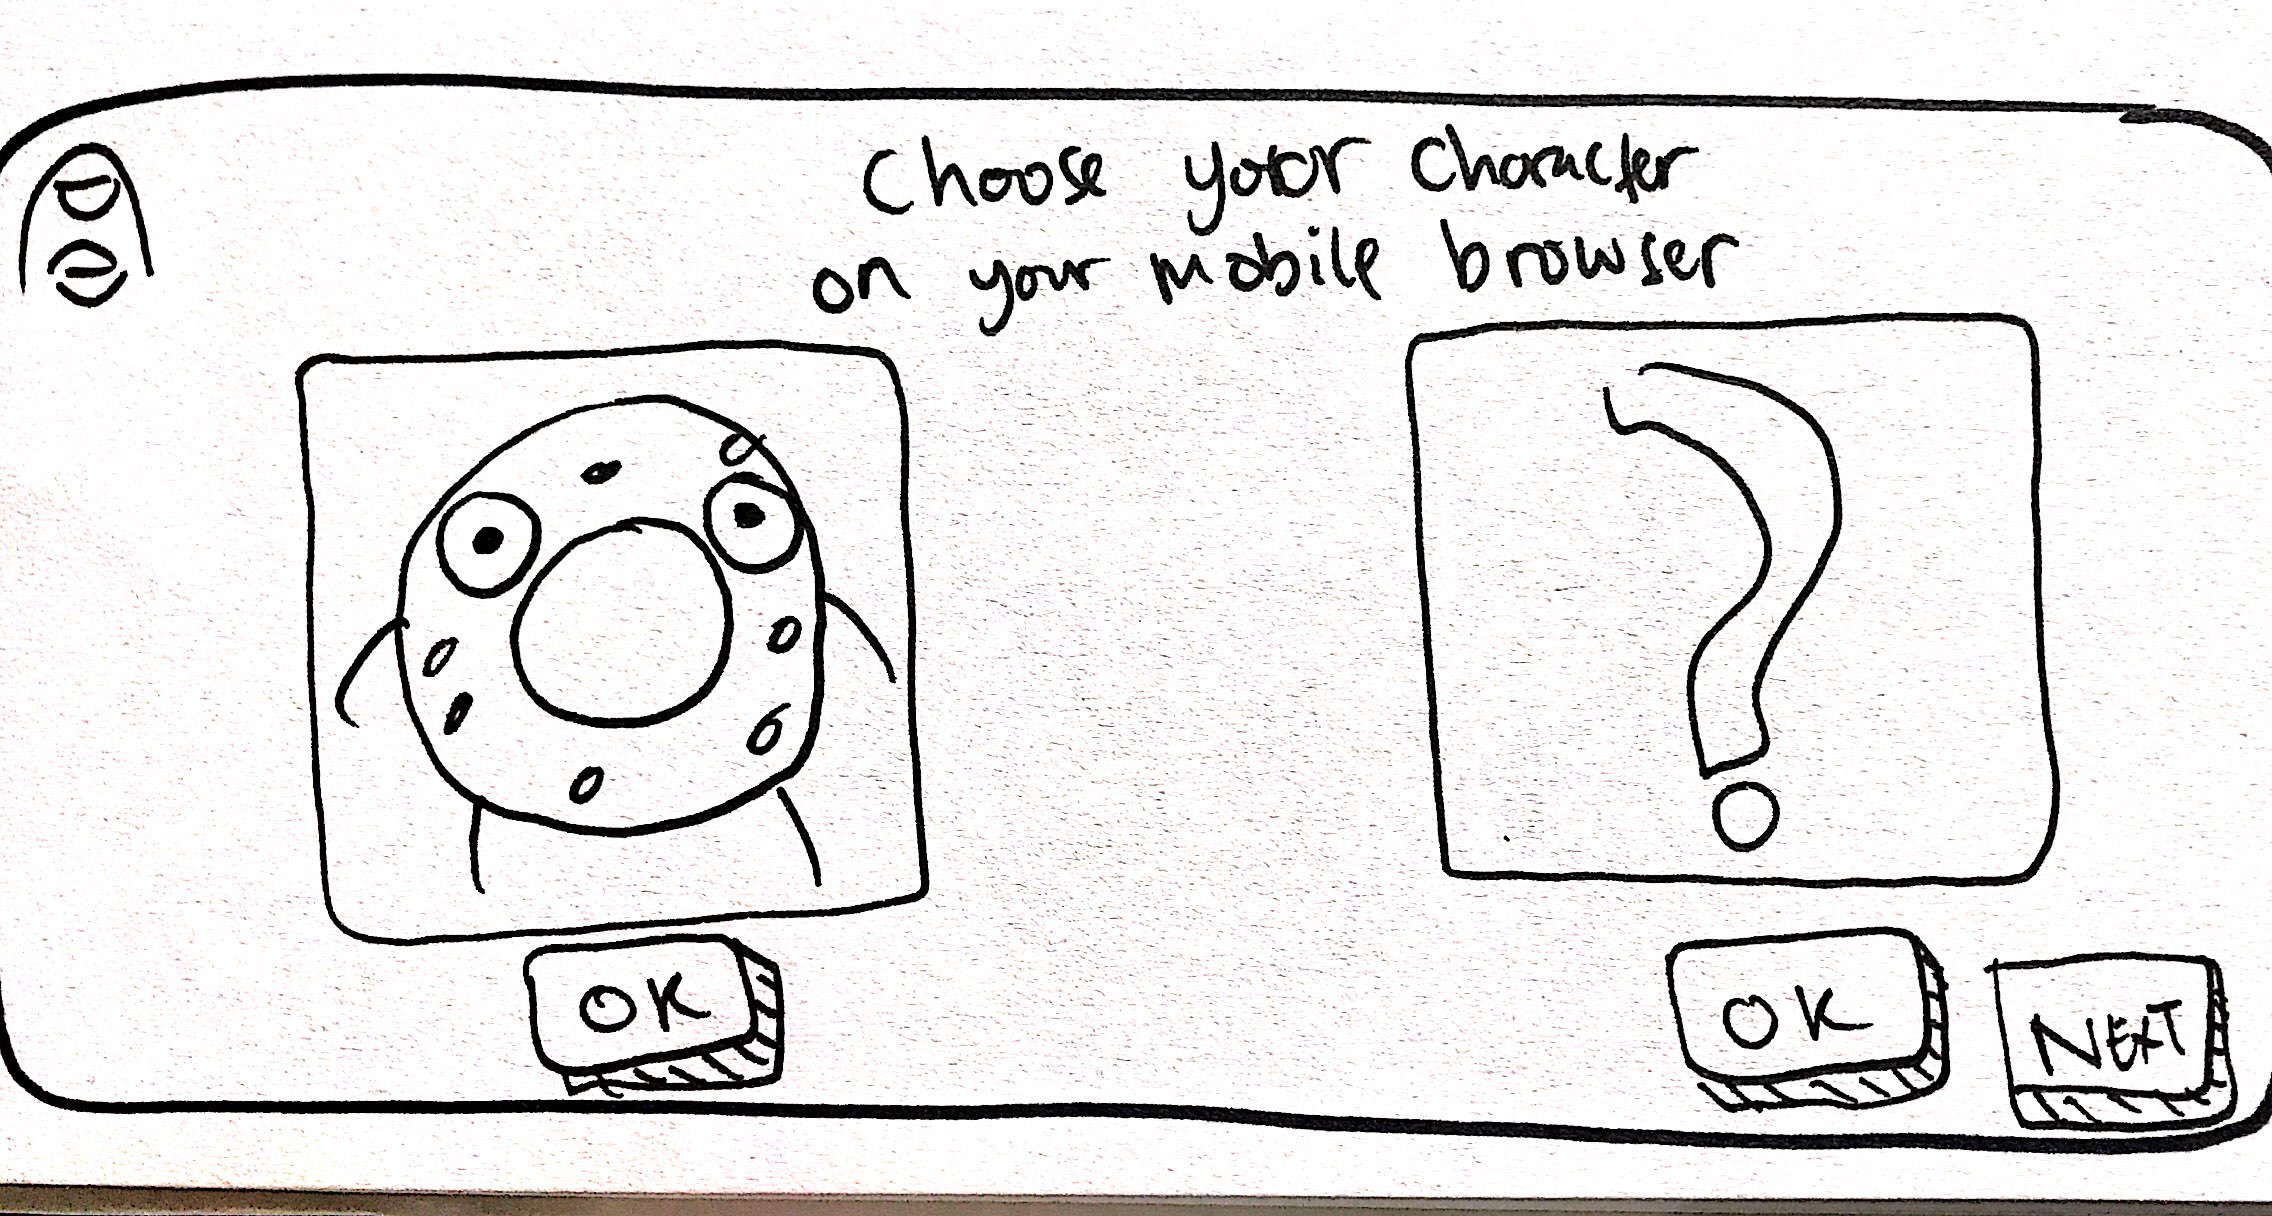 Choose your character
on your mobile browser
?
OK
OK
NEXT